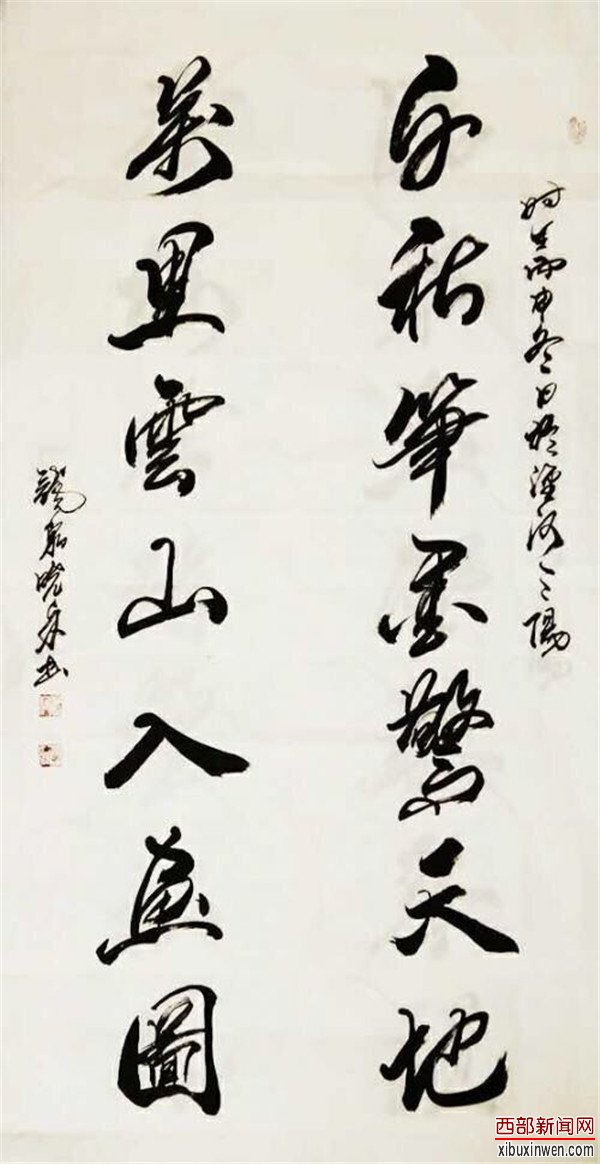 時在丙申冬日於涇河之陽
千秋筆墨驚天地
萬里雲山入畫圖
書
西部新闻网
xibuxinwen.com